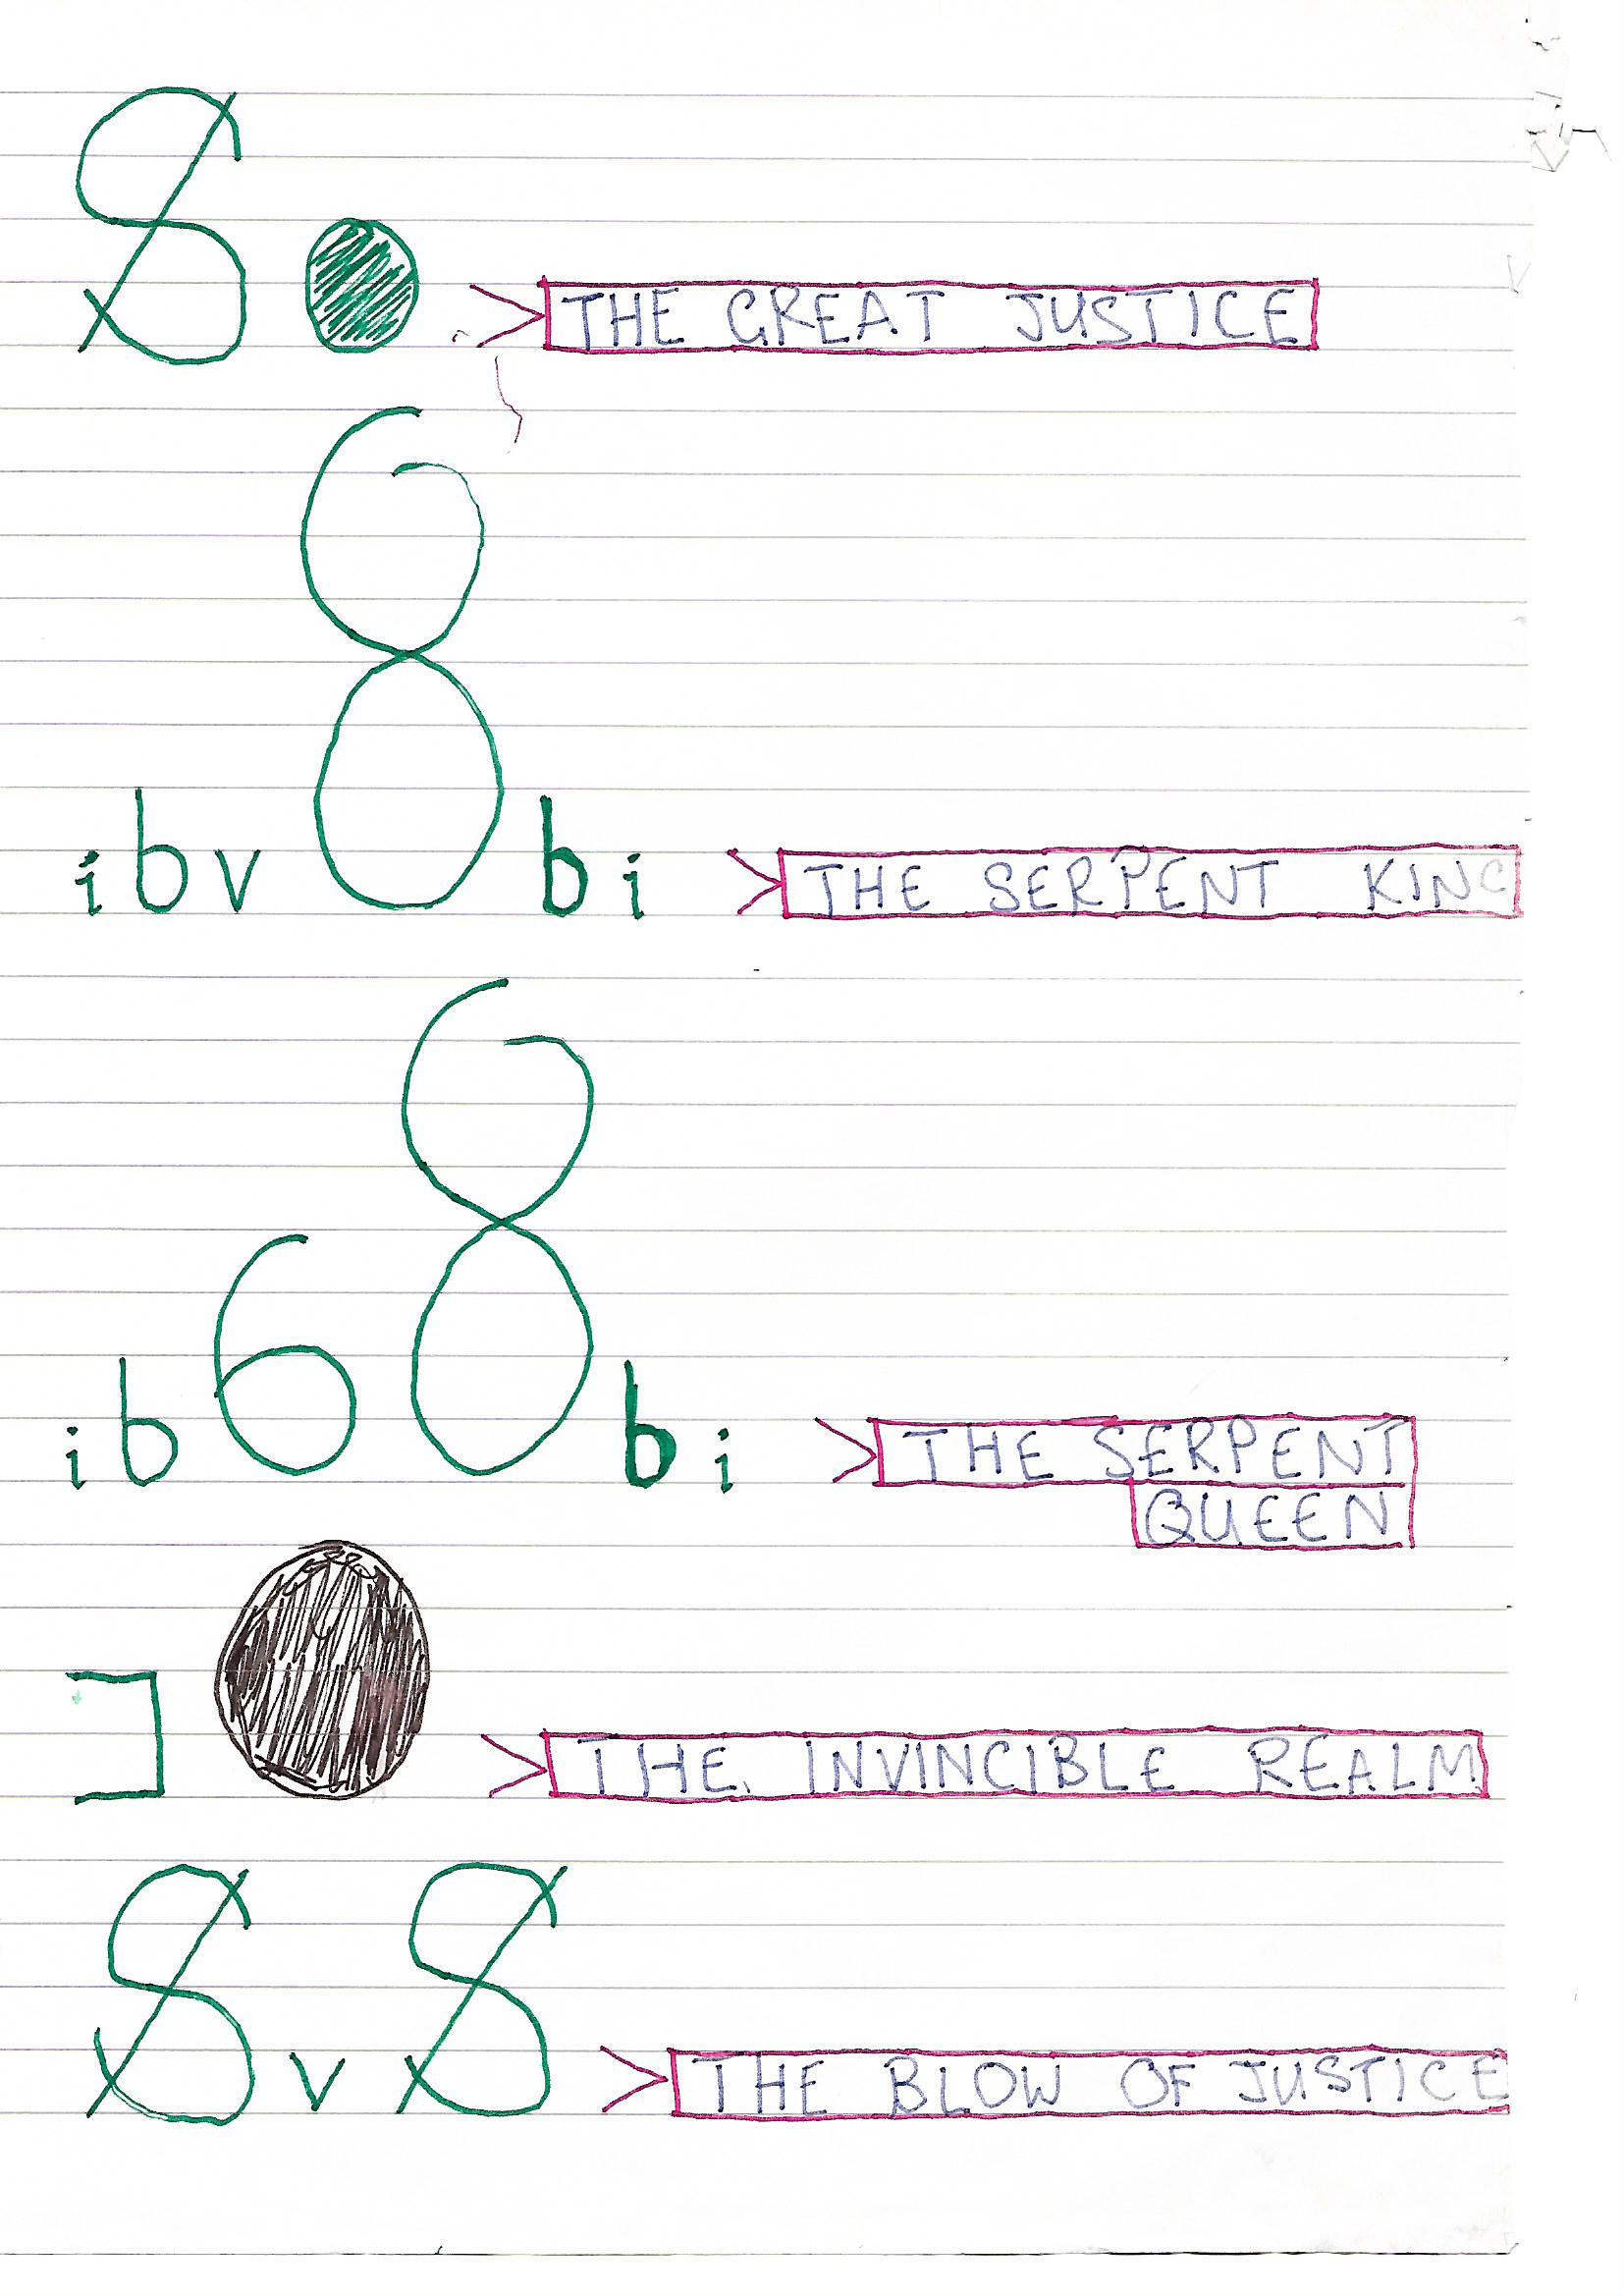 S THE GREAT JUSTICE
i b v 8 b i THE SERPENT KING
i b 6 8 b i THE SERPENT
QUEEN
THE INVINCIBLE REALM
S v S THE BLOW OF JUSTICE